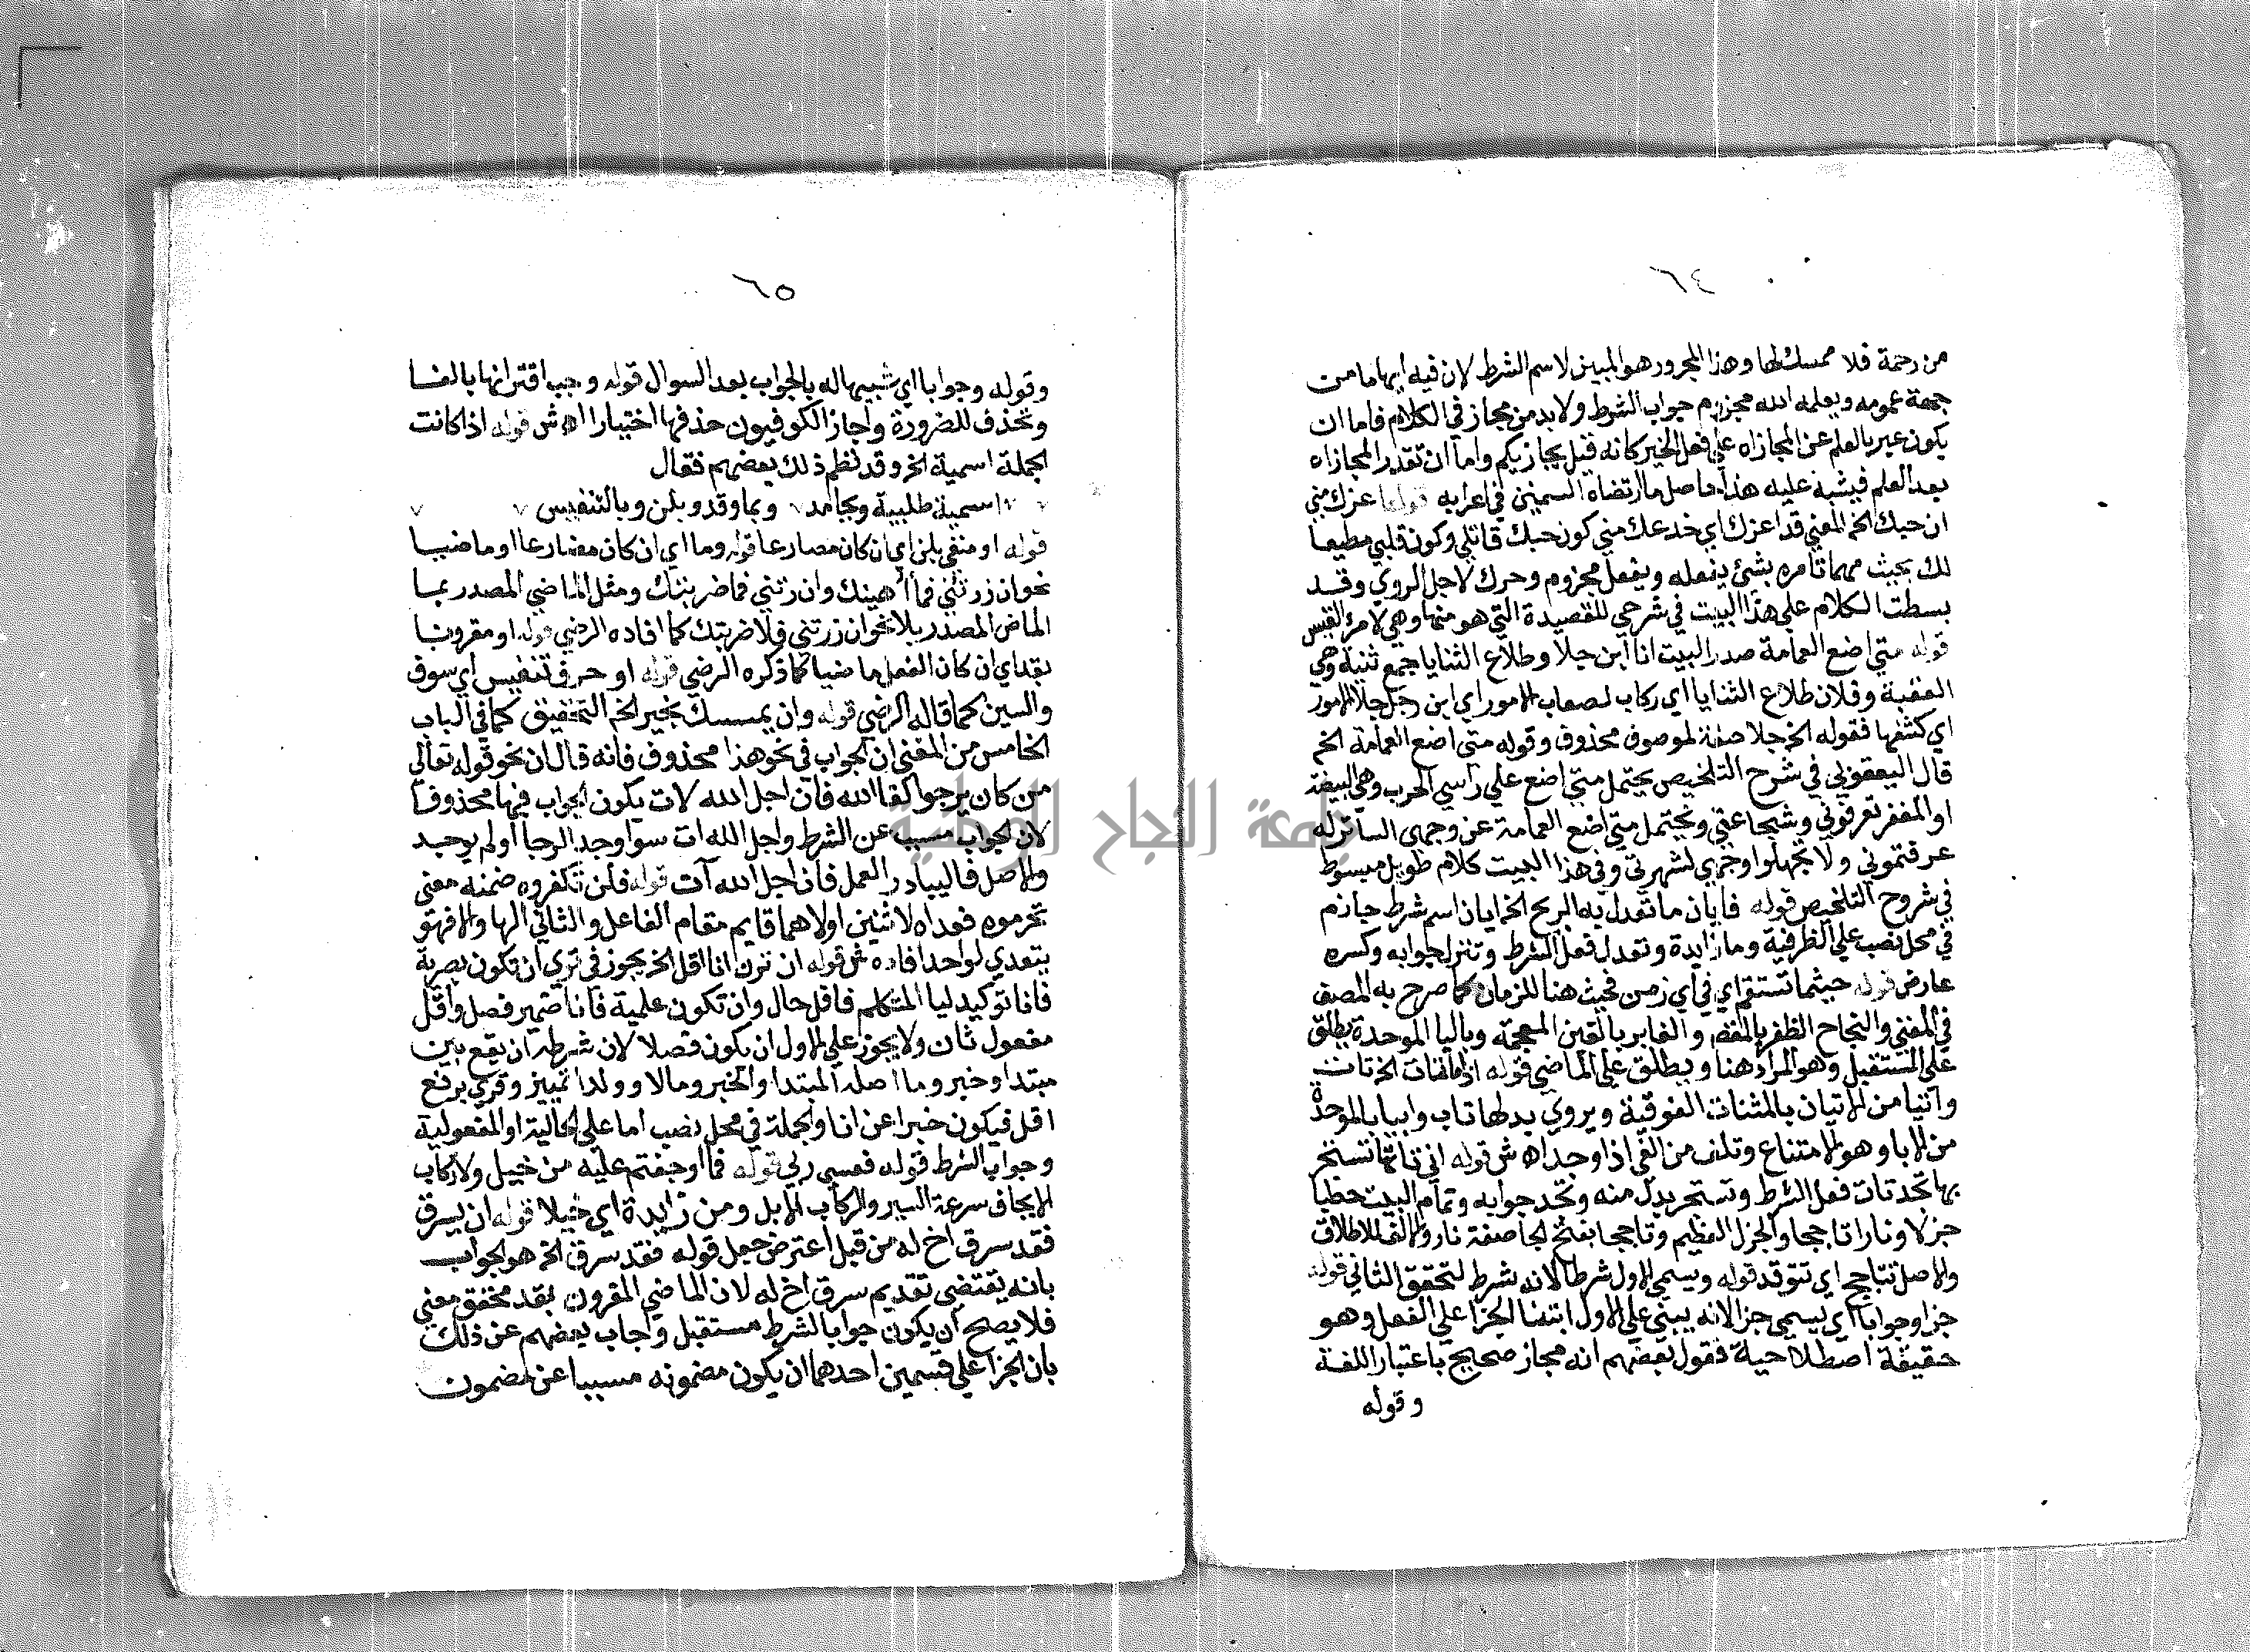 ٦٤
من رحمة فلا ممسك لها وهذا المجرور هو المبين لاسم الشرط لان فيه ايهاما من
جهة عمومه ويعلمه الله مجزوم جواب الشرط ولابد من مجاز في الكلام فاما ان
يكون عبر بالعلم عن المجازاه علي فعل الخير كانه قيل يجازيكم واما ان تقدر المجازاه
بعد العلم فيثيبه عليه هذا حاصل ما ارتضاه السمين في اعرابه قوله اغرك مني
ان حبك الخ المعني قد اغرك اي خدعك مني كون حبك قاتلي وكون قلبي مطيعا
لك بحيث مهما تامره بشئ يفعله ويفعل مجزوم وحرك لاجل الروي وقد
بسطت الكلام علي هذا البيت في شرحي للقصيدة التي هو منها وهي لامرئ القيس
قوله متي اضع العمامة صدر البيت انا ابن جلا وطلاع الثنايا جمع ثنية وهي
العقبة وفلان طلاع الثنايا اي ركاب لصعاب الامور اي ابن رجل جلا الامور
اي كشفها فقوله الخ جلا صفة لموصوف محذوف وقوله متي اضع العمامة الخ
قال اليعقوبي في شرح التلخيص يحتمل متي اضع علي راسي الحرب وهي البيضة
او المغفر تعرفوني وشجاعتي ويحتمل متي اضع العمامة عن وجهي الساتر له
عرفتموني ولا تجهلوا وجهي لشهرتي وفي هذا البيت كلام طويل مبسوط
في شروح التلخيص قوله فايان ما تعدل به الريح الخ ايان اسم شرط جازم
في محل نصب علي الظرفية وما زايدة وتعدل فعل الشرط وتنزل جوابه وكسره
عارض قوله حيثما تستقم اي في اي زمن فحيث هنا للزمان كما صرح به المصنف
في المغني والنجاح الظفر بالمقصد والغابر بالغين المعجمة وباليا الموحدة يطلق
علي المستقبل وهو المراد هنا ويطلق علي الماضي قوله اذ ما تات الخ تات
وآتيا من الاتيان بالمثنات الفوقية ويروي بدلها تاب وابيا بالموحدة
من الابا وهو الامتناع وتلف من الفي اذا وجد اه ش قوله اني تاتها تستجر
بها تجد تات فعل الشرط وتستجر بدل منه وتجد جوابه وتمام البيت حطبا
جزلا ونارا تاججا والجزل العظيم وتاججا بفتح الجا صفة نار والالف للاطلاق
والاصل تتاجج اي تتوقد قوله ويسمي الاول شرطا لانه شرط لتحقق الثاني قوله
جزا وجوابا اي يسمي جزا لانه يبتني علي الاول ابتنا الجزا علي الفعل وهو
حقيقة اصطلاحية فقول بعضهم انه مجاز صحيح باعتبار اللغة
وقوله
٦٥
وقوله وجوابا اي شبيها له بالجواب بعد السوال قوله وجب اقترانها بالفا
وتحذف للضرورة واجاز الكوفيون حذفها اختيارا اه ش قوله اذا كانت
الجملة اسمية الخ وقد نظم ذلك بعضهم فقال
اسمية طلبية وبجامد وبما وقد وبلن وبالتنفيس
قوله او منفي بلن اي ان كان مضارعا قوله وما اي ان كان مضارعا او ماضيا
نحو ان زرتني فما أهينك وان زرتني فما ضربتك ومثل الماضي المصدر بما
الماض المصدر بلا نحو ان زرتني فلا ضربتك كما افاده الرضي قوله او مقرونا
بقد اي ان كان الفعل ماضيا كما ذكره الرضي قوله او حرف تنفيس اي سوف
والسين كما قاله الرضي قوله وان يمسسك بخير الخ التحقيق كما في الباب
الخامس من المغني ان الجواب في نحو هذا محذوف فانه قال ان نحو قوله تعالي
من كان يرجوا لقا الله فان اجل الله لات يكون الجواب فيها محذوفا
لان الجواب مسبب عن الشرط واجل الله ات سوا وجد الرجا او لم يوجد
والاصل فاليبادر العمل فان اجل الله آت قوله فلن تكفروه ضمنه معني
تحرموه فعداه لاثنين اولاهما قايم مقام الفاعل والثاني الها والا فهو
يتعدي لواحد افاده ش قوله ان ترن انا اقل الخ يجوز في تري ان تكون بصرية
فانا توكيد ليا المتكلم فاقل حال وان تكون علمية فانا ضمير فصل واقل
مفعول ثان ولا يجوز علي الاول ان يكون فصلا لان شرطه ان يقع بين
مبتدا وخبر وما اصله المبتدا والخبر ومالا وولدا تمييز وقري برفع
اقل فيكون خبرا عن انا والجملة في محل نصب اما علي الحالية او المفعولية
وجواب الشرط قوله فعسي ربي قوله فما اوجفتم عليه من خيل ولا ركاب
الايجاف سرعة السير والركاب الابل ومن زايدة اي خيلا قوله ان يسرق
فقد سرق اخ له من قبل اعترض جعل قوله فقد سرق الخ هو الجواب
بانه يقتضي تقديم سرق اخ له لان الماضي المقرون بقد محقق معني
فلا يصح ان يكون جوابا لشرط مستقبل واجاب بعضهم عن ذلك
بان الجزا علي قسمين احدهما ان يكون مضمونه مسببا عن مضمون
جامعة النجاح الوطنية